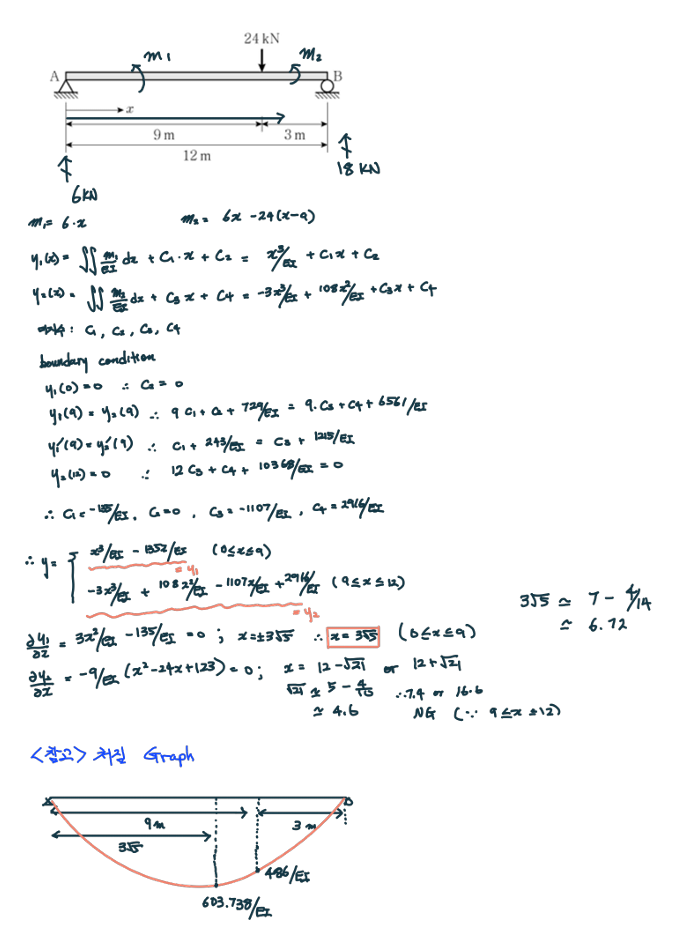 24 kN
m₁
m₂
A
B
x
9 m
3 m
12 m
6kN
18 kN
m₁= 6·x
m₂= 6x -24(x-9)
y₁(x) = ∬ m₁/EI dx + C₁·x + C₂ = x³/EI + C₁x + C₂
y₂(x) = ∬ m₂/EI dx + C₃ x + C₄ = -3x³/EI + 108x²/EI + C₃x + C₄
미지수: C₁, C₂, C₃, C₄
boundary condition
y₁(0)=0 ∴ C₂ = 0
y₁(9) = y₂(9) ∴ 9C₁ + C₂ + 729/EI = 9·C₃ + C₄ + 6561/EI
y₁'(9) = y₂'(9) ∴ C₁ + 243/EI = C₃ + 1215/EI
y₂(12)=0 ∴ 12C₃ + C₄ + 10368/EI = 0
∴ C₁ = -135/EI, C₂=0, C₃ = -1107/EI, C₄ = 2916/EI
∴ y = x³/EI - 135x/EI (0≤x≤9)
= y₁
-3x³/EI + 108x²/EI - 1107x/EI + 2916/EI (9≤x≤12)
= y₂
3√5 ≃ 7 - 4/14
≃ 6.72
∂y₁/∂x = 3x²/EI - 135/EI = 0 ; x=±3√5 ∴ x = 3√5 (0≤x≤9)
∂y₂/∂x = -9/EI (x²-24x+123) = 0 ; x = 12-√21 or 12+√21
√21 ≃ 5 - 4/10 ∴ 7.4 or 16.6
≃ 4.6 NG (∵ 9≤x≤12)
<참고> 처짐 Graph
9m
3 m
3√5
486/EI
603.738/EI